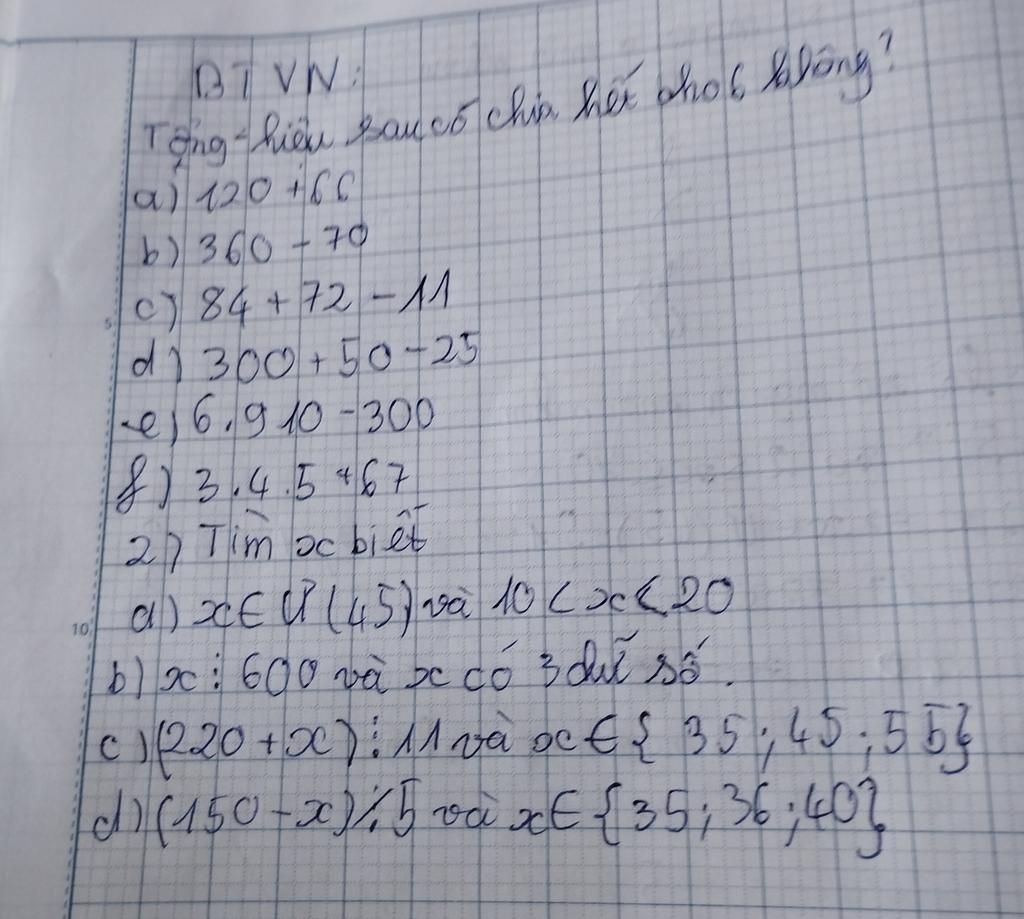 BTVN:
Tổng - hiệu sau có chia hết cho 6 không?
a) 120 + 66
b) 360 - 70
c) 84 + 72 - 11
d) 300 + 50 - 25
e) 6 . 910 - 300
f) 3 . 4 . 5 + 67
2) Tìm x biết
a) x ∈ Ư (45) và 10 < x < 20
b) x ⋮ 600 và x có 3 chữ số.
c) (220 + x) ⋮ 11 và x ∈ { 35 ; 45 ; 55}
d) (150 - x) ⋮ 5 và x ∈ {35 ; 36 ; 40}
5
10